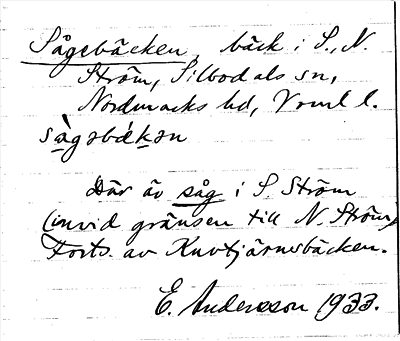 Sågebäcken, bäck i S., N.
Ström, Silbodals sn,
Nordmarks hd, Vrml l.
sågəbäkən
Där är såg i S. Ström
(invid gränsen till N. Ström)
Forts. av Knvtjärnsbäcken.
E. Andersson 1933.